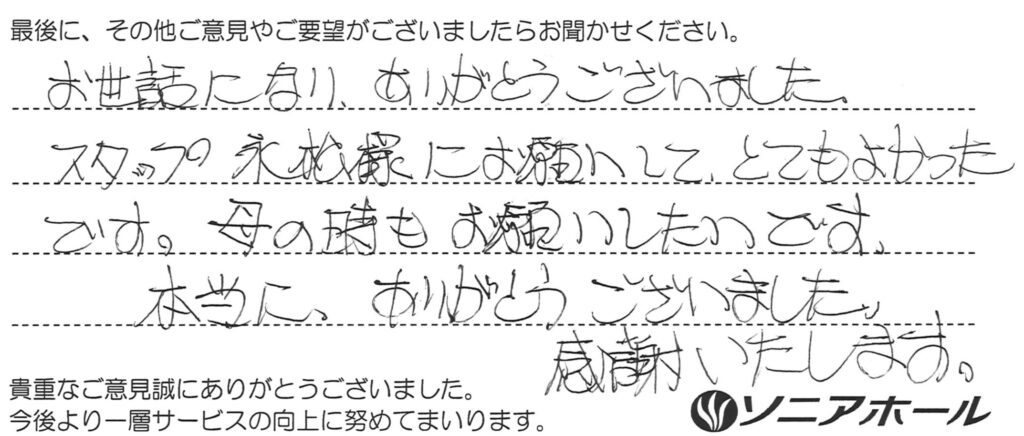 最後に、その他ご意見やご要望がございましたらお聞かせください。
お世話になり、ありがとうございました。
スタッフの永松様にお願いして、とてもよかった
です。母の時もお願いしたいです。
本当に、ありがとうございました。
感謝いたします。
貴重なご意見誠にありがとうございました。
今後より一層サービスの向上に努めてまいります。
ソニアホール